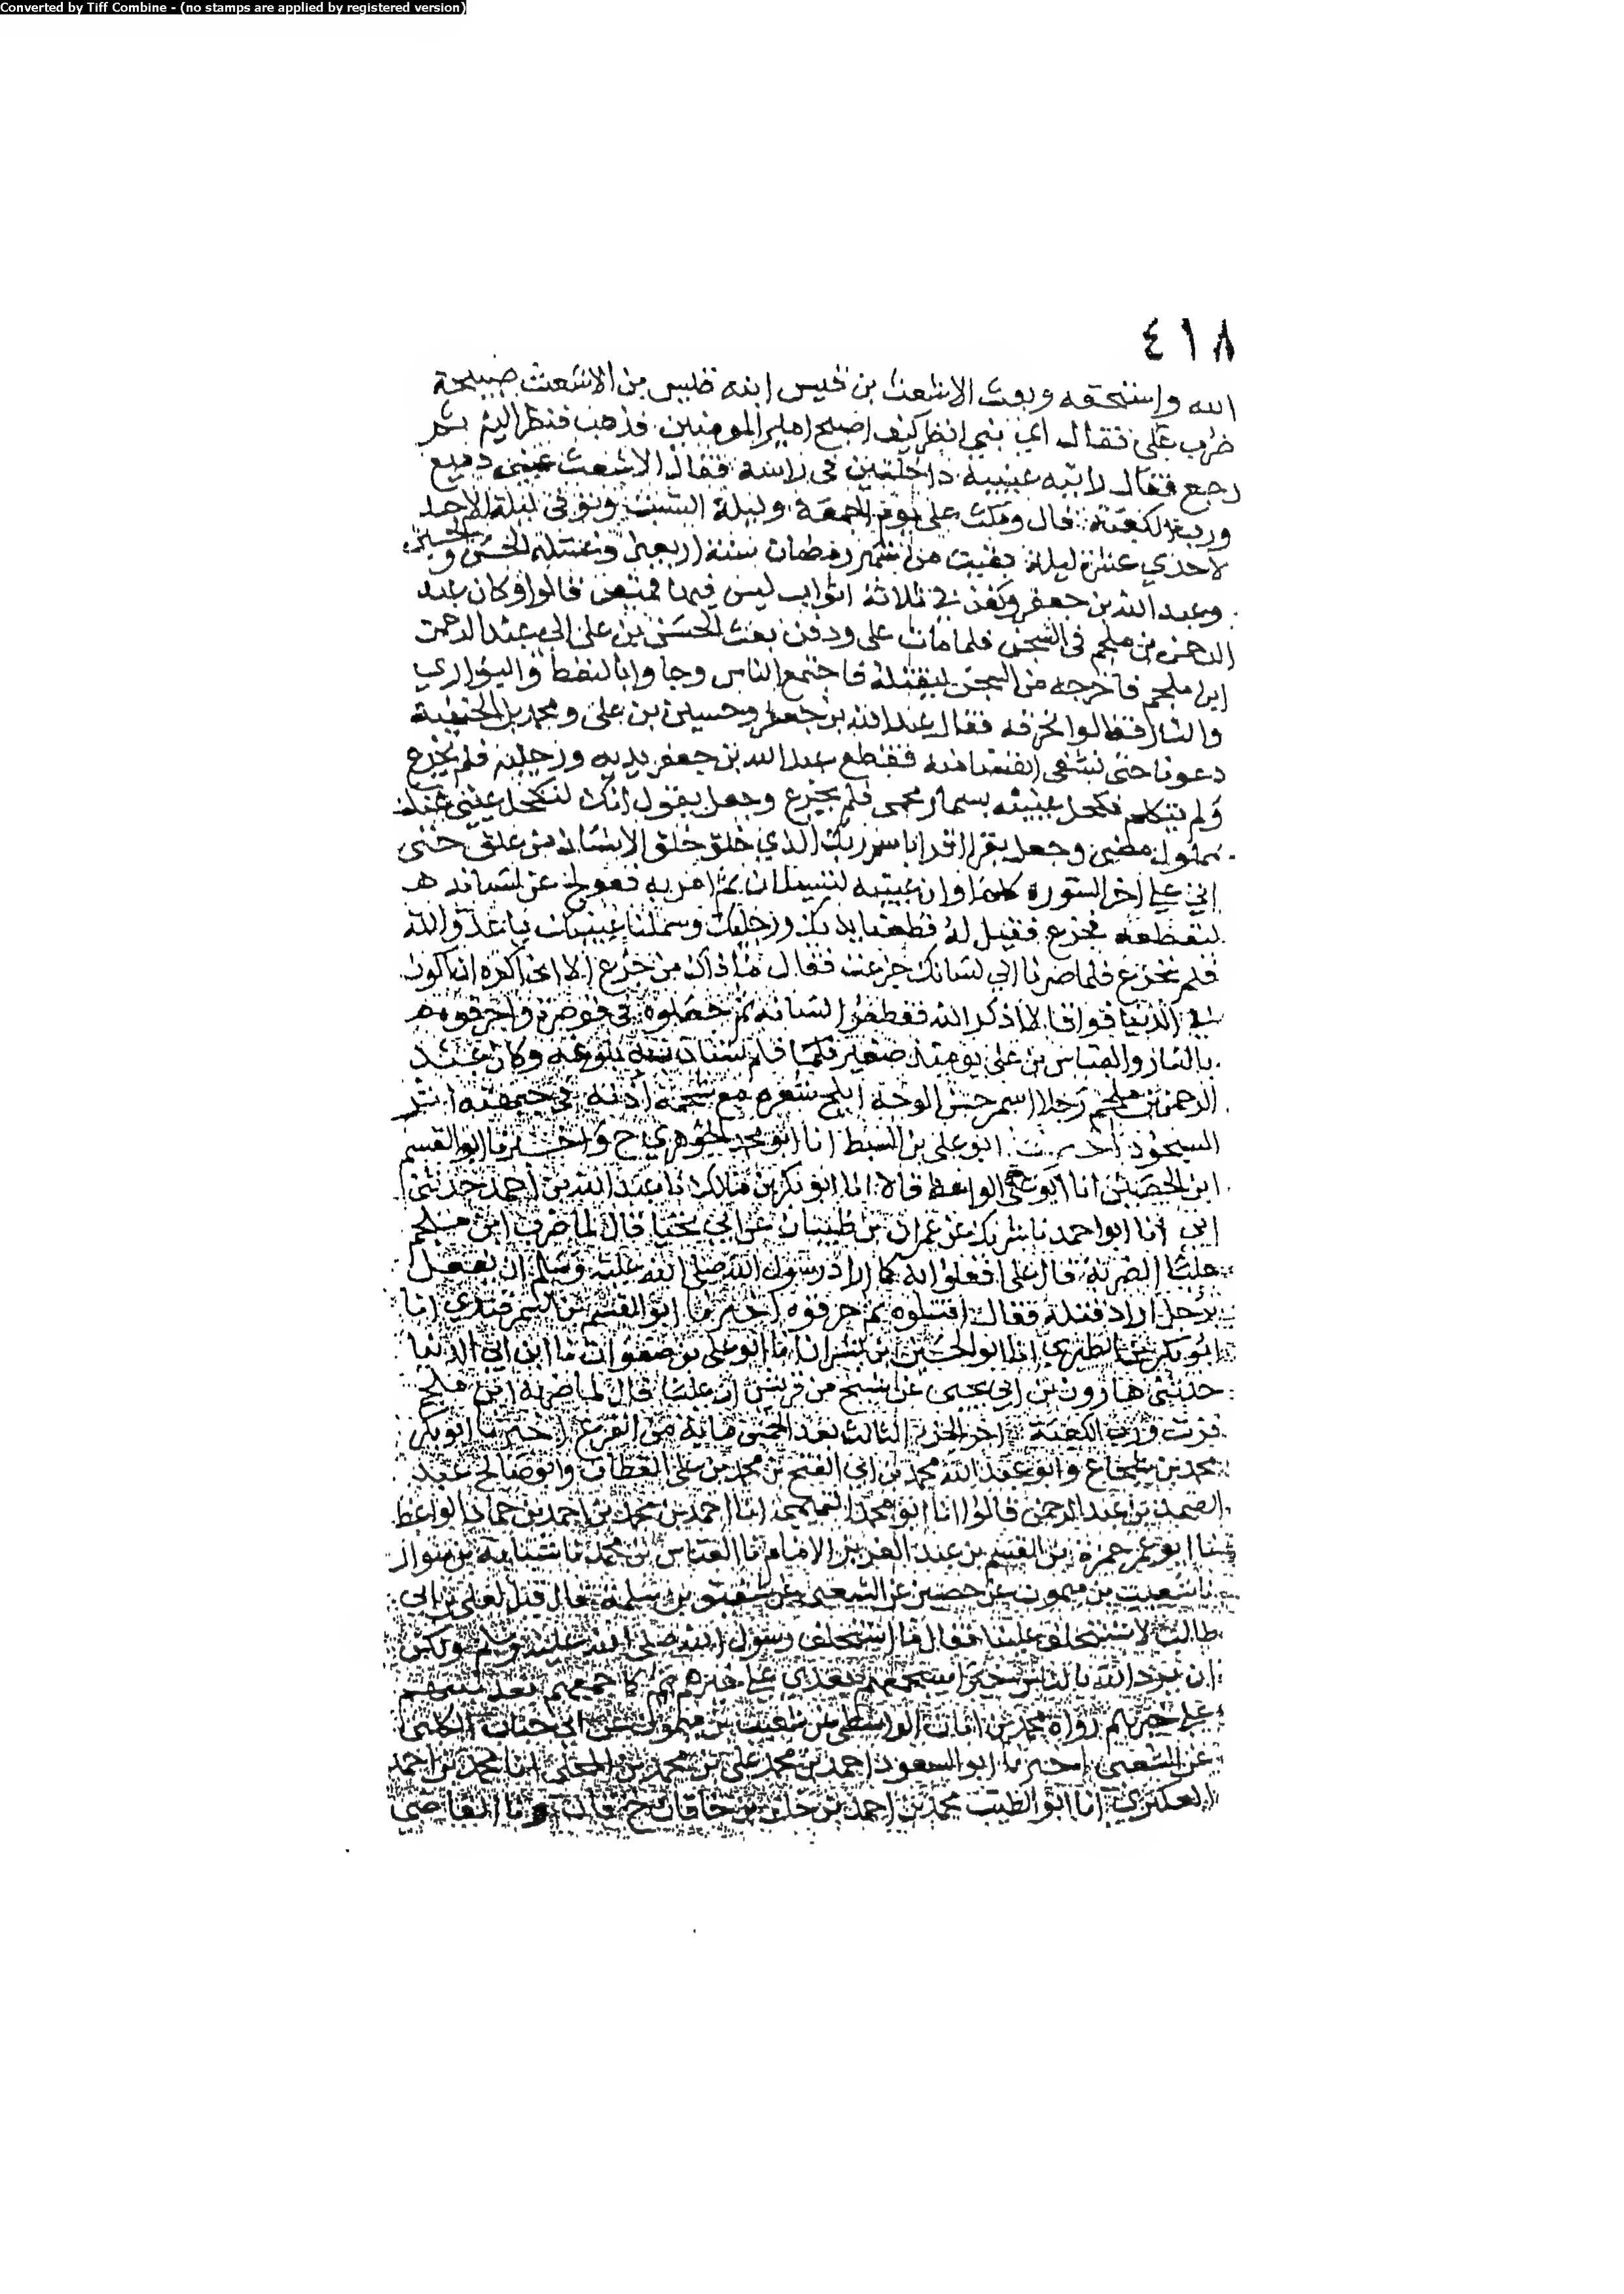 Converted by Tiff Combine - (no stamps are applied by registered version)
٤١٨
الله واستحقه وبعث الاشعث بن قيس ابنه قيس بن الاشعث صبيحة
ضرب على فقال اي بني انظر كيف اصبح امير المومنين فذهب فنظر اليه ثم
رجع فقال رايته عينيه داخلتين في راسه فقال الاشعث عيني دميغ
ورب الكعبة قال ومكث على يوم الجمعة وليلة السبت وتوفي ليلة الاحد
لاحدي عشرة ليلة بقيت من شهر رمضان سنة اربعين وغسله الحسن والحسين
وعبد الله بن جعفر وكفن في ثلاثة اثواب ليس فيها قميص قالوا وكان عبد
الرحمن بن ملجم في السجن فلما مات على ودفن بعث الحسن بن على الى عبد الرحمن
ابن ملجم فاخرجه من السجن ليقتله فاجتمع الناس وجاوا بالنفط والبواري
والنار فقالوا نحرقه فقال عبد الله بن جعفر وحسين بن على ومحمد بن الحنفية
دعونا حتى نشفى انفسنا منه فقطع عبد الله بن جعفر يديه ورجليه فلم يجزع
ولم يتكلم فكحل عينيه بمسمار محمى فلم يجزع وجعل يقول انك لتكحل عيني عمك
بملول مضى وجعل يقرا اقرا باسم ربك الذي خلق خلق الانسان من علق حتى
اتي على اخر السورة كلها وان عينيه لتسيلان ثم امر به فعولج عن لسانه
ليقطعه فجزع فقيل له قطعنا يديك ورجليك وسملنا عينيك يا عدو الله
فلم تجزع فلما صرنا الي لسانك جزعت فقال ما ذاك من جزع الا اني اكره ان اكون
في الدنيا فواقا لا اذكر الله فقطعوا لسانه ثم جعلوه في قوصرة واحرقوه
بالنار والعباس بن على يومئذ صغير فلم يستان به بلوغه وكان عبد
الرحمن بن ملجم رجلا اسمر حسن الوجه ابلج شعره مع شحمة اذنه في جبهته اثر
السجود اخبرنا ابو على بن السبط انا ابو محمد الجوهري ح واخبرنا ابو القسم
ابن الحصين انا ابو على الواعظ قالا انا ابو بكر بن مالك نا عبد الله بن احمد حدثني
ابي انا ابو احمد نا شريك عن عمران بن ظبيان عن ابي يحيا قال لما ضرب ابن ملجم
عليا الضربة قال على افعلوا به كما اراد رسول الله صلى الله عليه وسلم ان يفعل
برجل اراد قتله فقال اقتلوه ثم حرقوه اخبرنا ابو القسم بن السمرقندي انا
ابو بكر بن الطبري انا ابو الحسين بن بشران نا ابو على بن صفوان نا ابن ابي الدنيا
حدثني هارون بن ابي يحيى عن شيخ من قريش ان عليا قال لما ضربه ابن ملجم
فزت ورب الكعبة اخر الجزء الثالث بعد الخمس ماية من الفرع اخبرنا ابو بكر
محمد بن شجاع وابو عبد الله محمد بن ابي الفتح بن محمد بن على القطان وابو صالح عبد
الصمد بن عبد الرحمن قالوا انا ابو محمد التميمي انا احمد بن محمد بن احمد بن حماد الواعظ
نا ابو عمر حمزة بن القسم بن عبد العزيز الامام نا العباس بن محمد نا شبابة بن سوار
نا شعيب بن ميمون عن حصين عن الشعبي عن شقيق بن سلمة قال قيل لعلى بن ابي
طالب لا تستخلف علينا فقال ما استخلف رسول الله صلى الله عليه وسلم ولكن
ان يرد الله بالناس خيرا سيجمعهم بعدي على خيرهم كما جمعهم بعد نبيهم
على خيرهم رواه محمد بن ابان الواسطي عن شعيب بن ميمون عن ابي جناب الكلبي
عن الشعبي اخبرنا ابو السعود احمد بن محمد على بن محمد بن المجلى انا محمد بن احمد
العكبري انا ابو الطيب محمد بن احمد بن خلف بن خاقان ح قال ونا القاضي